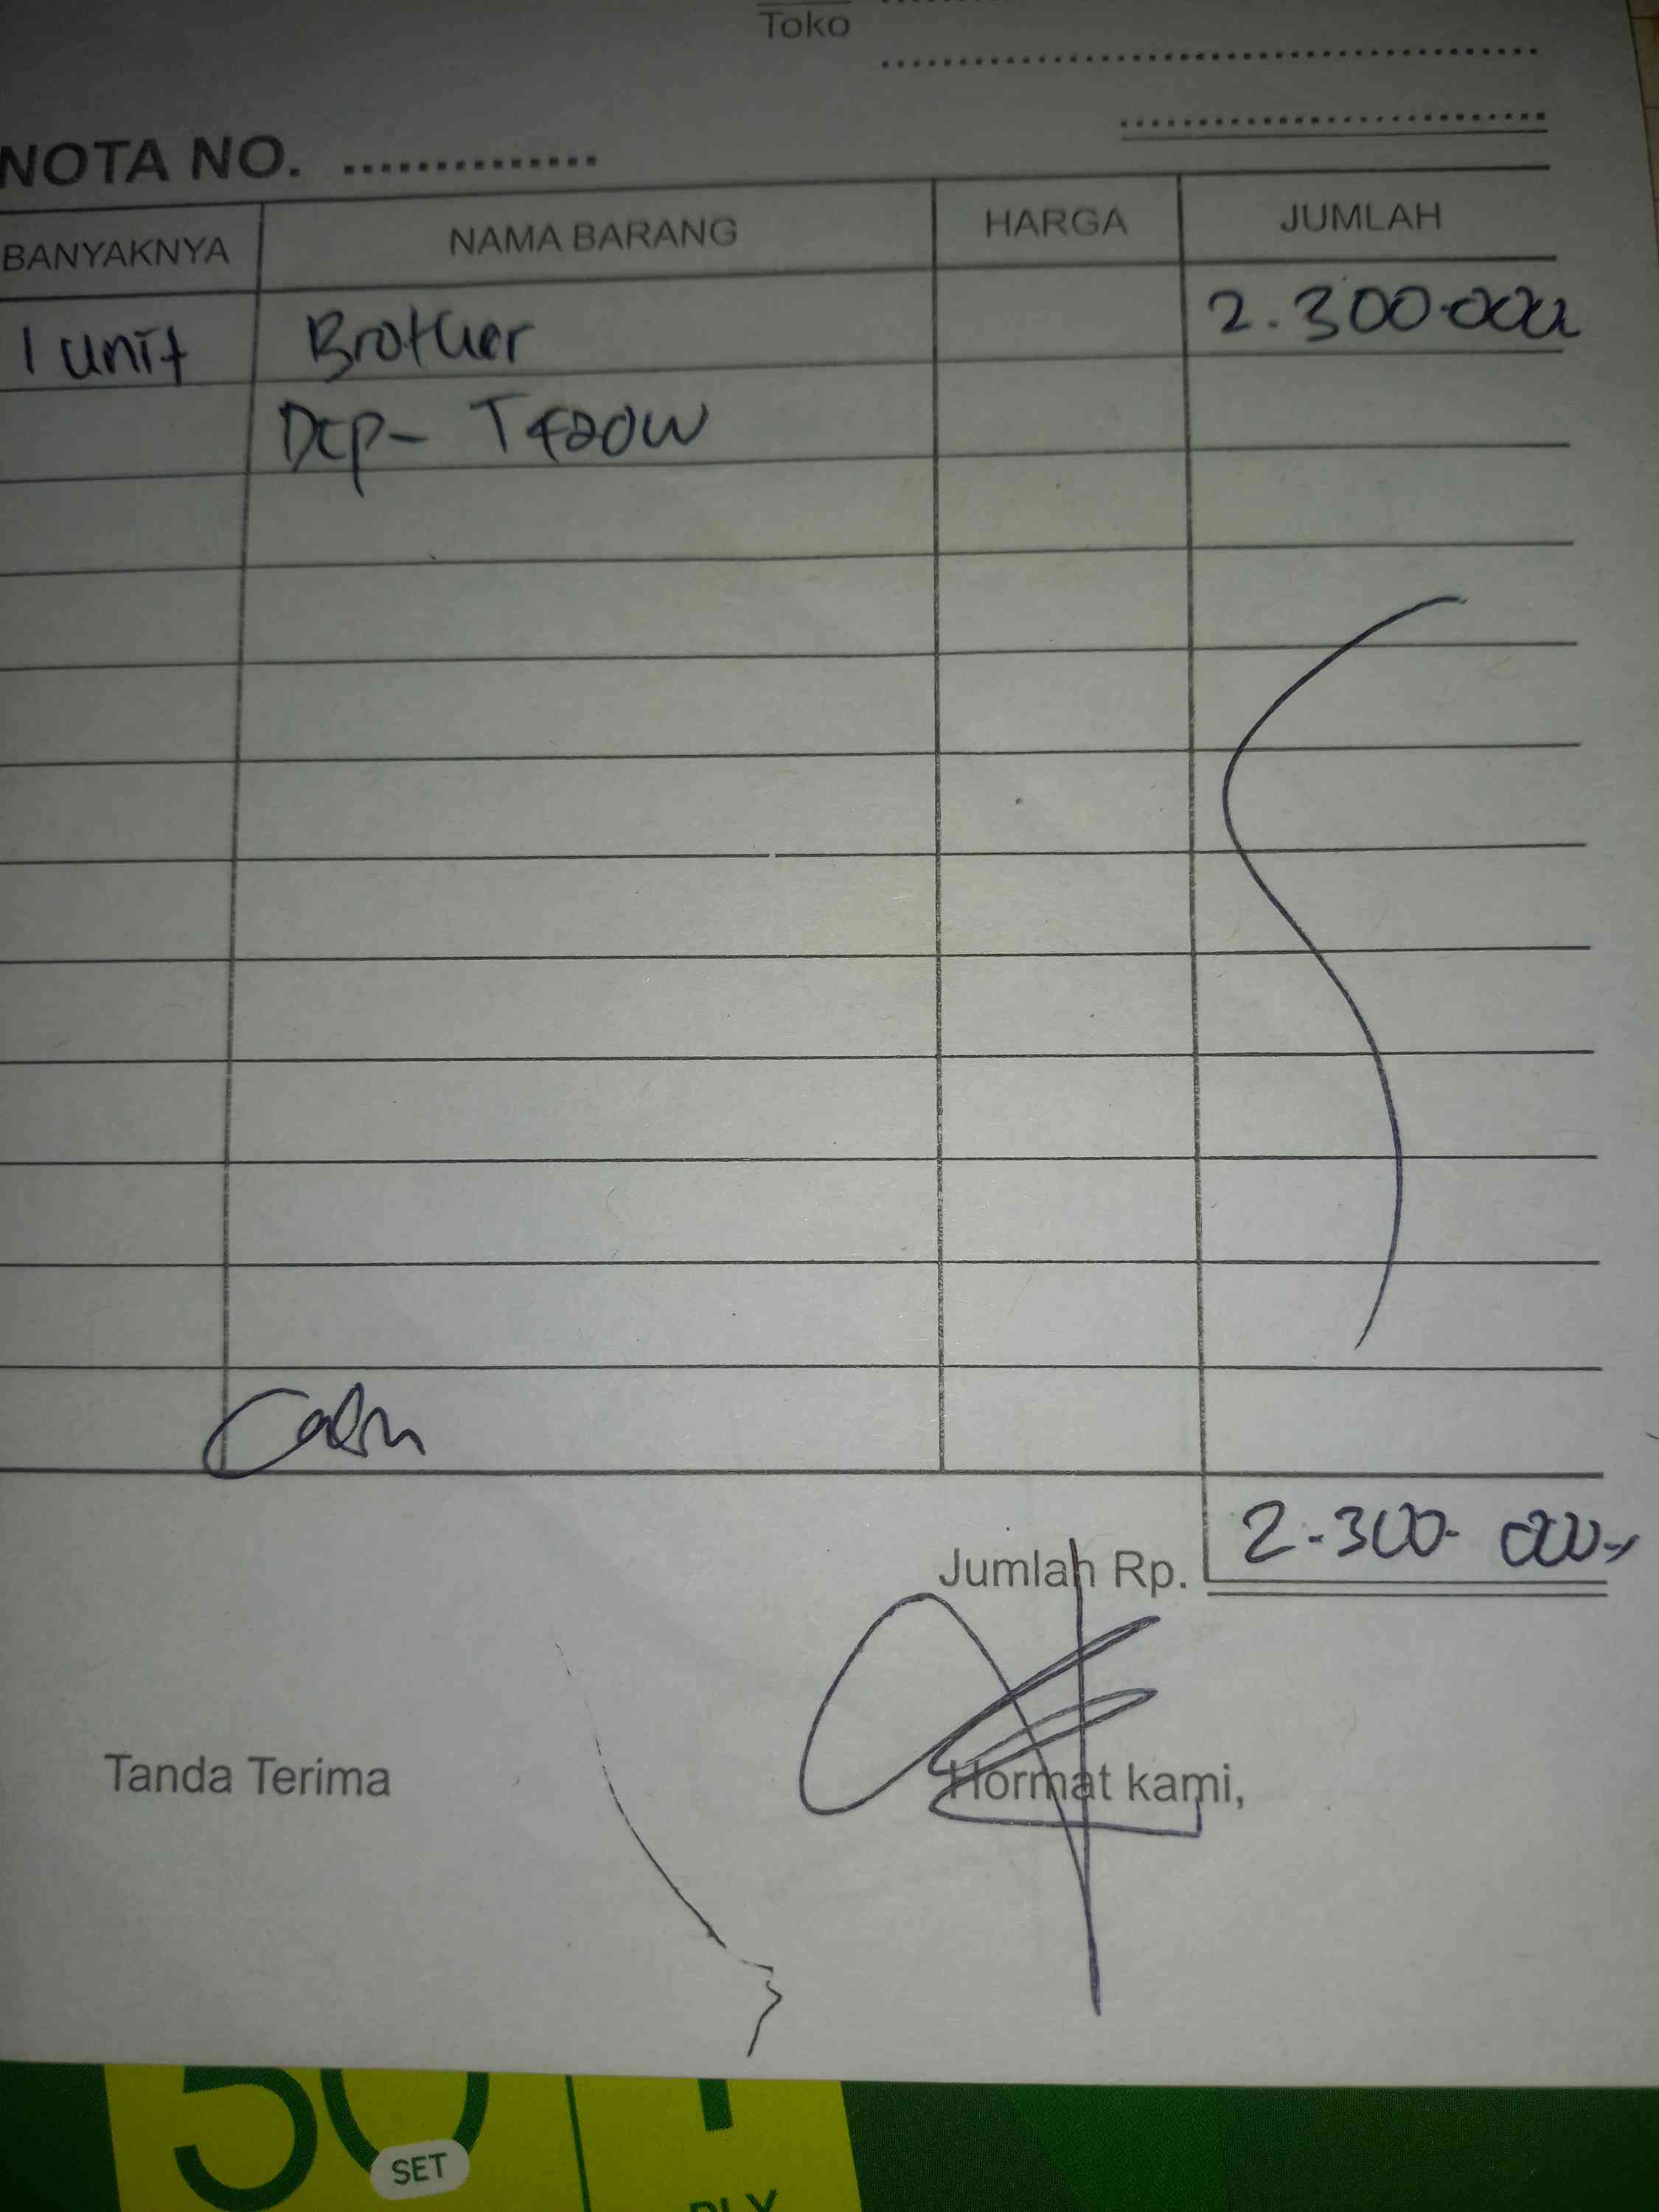 Toko
NOTA NO.
BANYAKNYA NAMA BARANG HARGA JUMLAH
1 unit Brother 2.300.000
DCP- T420W
Cash
Jumlah Rp. 2.300.000,-
Tanda Terima Hormat kami,
50
SET
PLY